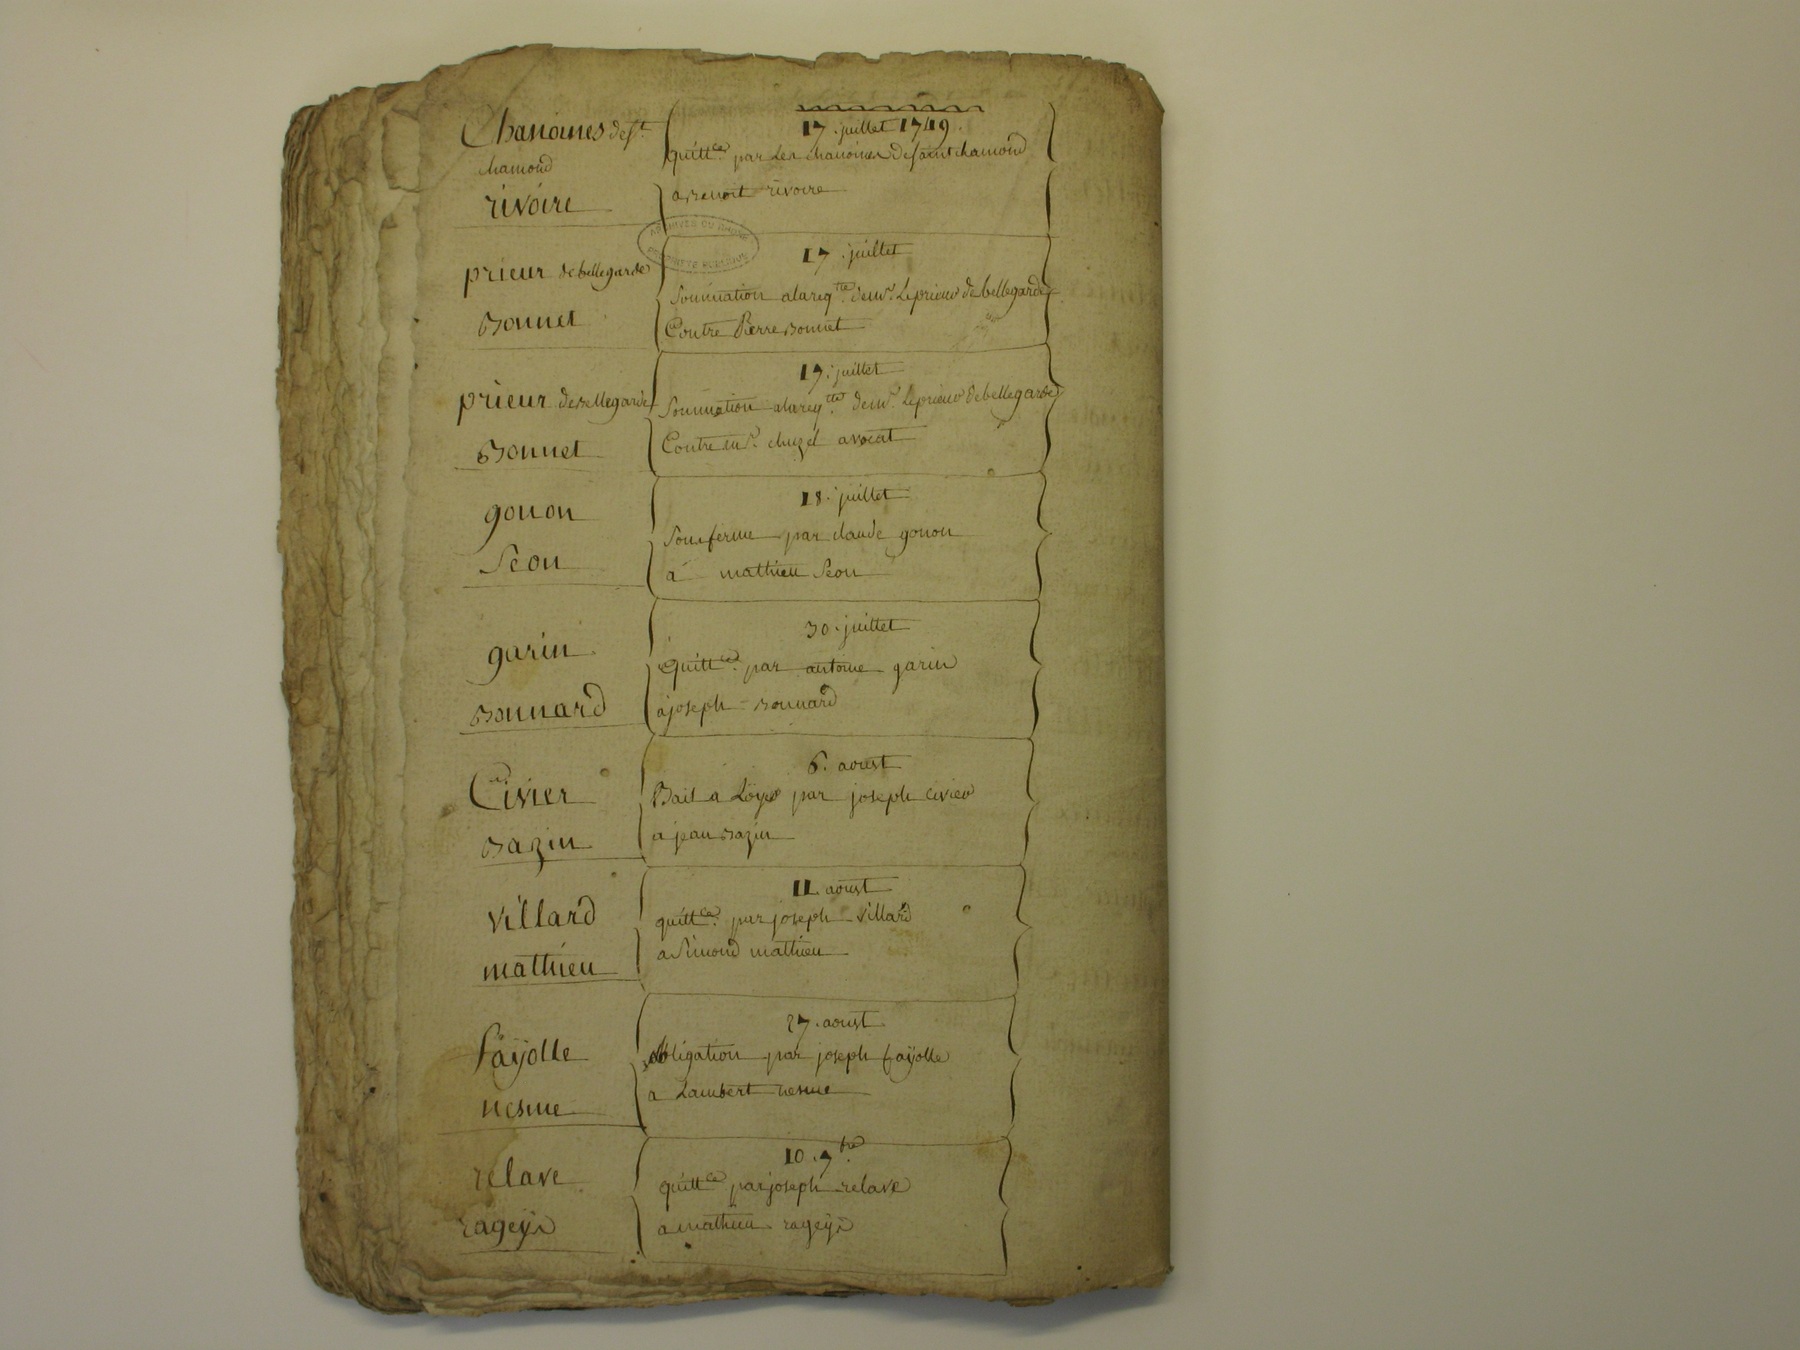 Chanoines de st
chamond
rivoire
17. juillet 1749.
quittce. par Les chanoines de saint chamond
a Benoit rivoire
ARCHIVES DU RHONE
prieur de bellegarde
Bonnet
17. juillet
Sommation a la reqte. de mr. Le prieur de bellegarde
Contre Pierre Bonnet
prieur de Bellegarde
Bonnet
17. juillet
Sommation a la reqte. de mr. Le prieur de bellegarde
Contre mr. chuzel avocat
gonon
Seon
18. juillet
Sousferme par claude gonon
à mathieu Seon
garin
Bonnard
30. juillet
Quittce. par antoine garin
a joseph Bonnard
Civier
Bazin
6. aoust
Bail a Loyer par joseph civier
a jean Bazin
villard
mathieu
11. aoust
quittce. par joseph villard
a Simond mathieu
fayolle
nesme
27. aoust
obligation par joseph fayolle
a Lambert nesme
relave
rageys
10. 7bre.
quittce par joseph relave
a mathieu rageys